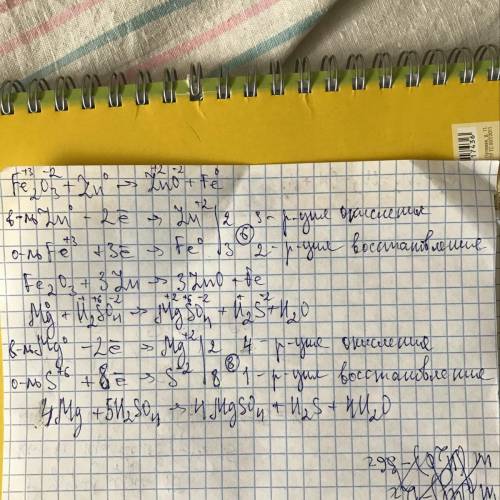 Fe₂⁺³O₃⁻² + Zn⁰ → Zn⁺²O⁻² + Fe⁰
в-ль Zn⁰ - 2ē → Zn⁺² | 2 | 3 - р-ция окисления
⑥
о-ль Fe⁺³ + 3ē → Fe⁰ | 3 | 2 - р-ция восстановления
Fe₂O₃ + 3Zn → 3ZnO + Fe
Mg⁰ + H₂⁺S⁺⁶O₄⁻² → Mg⁺²S⁺⁶O₄⁻² + H₂⁺S⁻² + H₂O
в-ль Mg⁰ - 2ē → Mg⁺² | 2 | 4 - р-ция окисления
⑧
о-ль S⁺⁶ + 8ē → S⁻² | 8 | 1 - р-ция восстановления
4Mg + 5H₂SO₄ → 4MgSO₄ + H₂S + 4H₂O